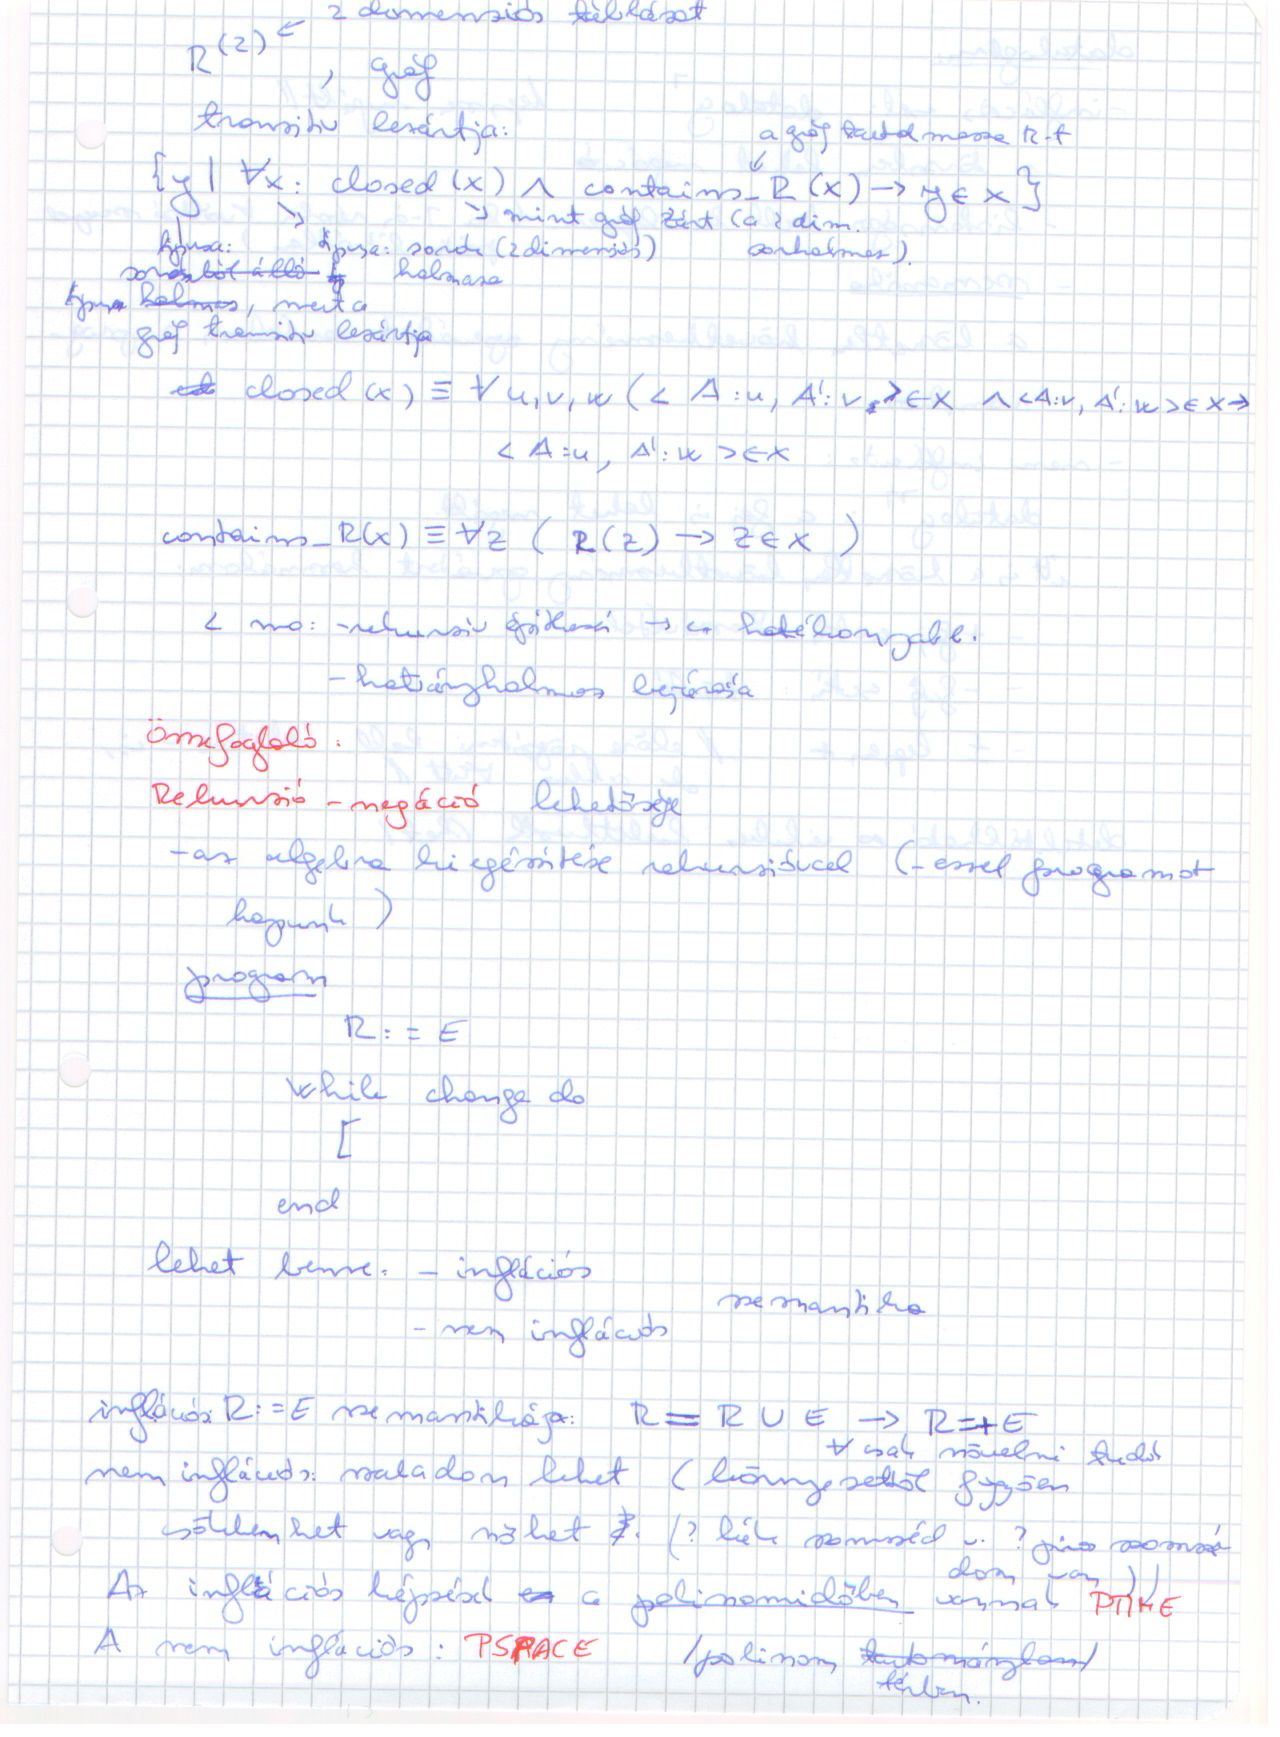 2 domenziós táblázat
R^(2) ← , gráf
tranzitív lezártja:
a gráf tartalmazza R-t
{y | ∀x: closed(x) ∧ contains_R(x) → y ∈ x}
→ mint gráf zárt (a 2 dim. sorhalmaz).
típusa: típusa: sorok (2 dimenziós)
sorokból álló halmaza
típusa halmaz, mert a
gráf tranzitív lezártja
closed(x) ≡ ∀u,v,w (<A:u, A':v> ∈ x ∧ <A:v, A':w> ∈ x →
<A:u, A':w> ∈ x
contains_R(x) ≡ ∀z ( R(z) → z ∈ x )
< mo: -rekurzív építkezés → hatékonyabb.
-hatványhalmaz bejárása
Összefoglaló:
Rekurzió - negáció lehetősége
-az algebra kiegészítése rekurzióval (-ezzel programot
kapunk)
program
R := E
while change do
[
end
lehet benne: - inflációs
szemantika
- nem inflációs
inflációs: R:=E szemantikája: R = R ∪ E → R=+E
∀ csak növelni tudó
nem inflációs: szabadon lehet (környezettől függően
csökkenhet vagy nőhet (? kék szomszéd v. ? piros szomszé
dom van))
Az inflációs képzésű a polinomidőben vannak PTIME
A nem inflációs: PSPACE /polinom tartományban/
térben.